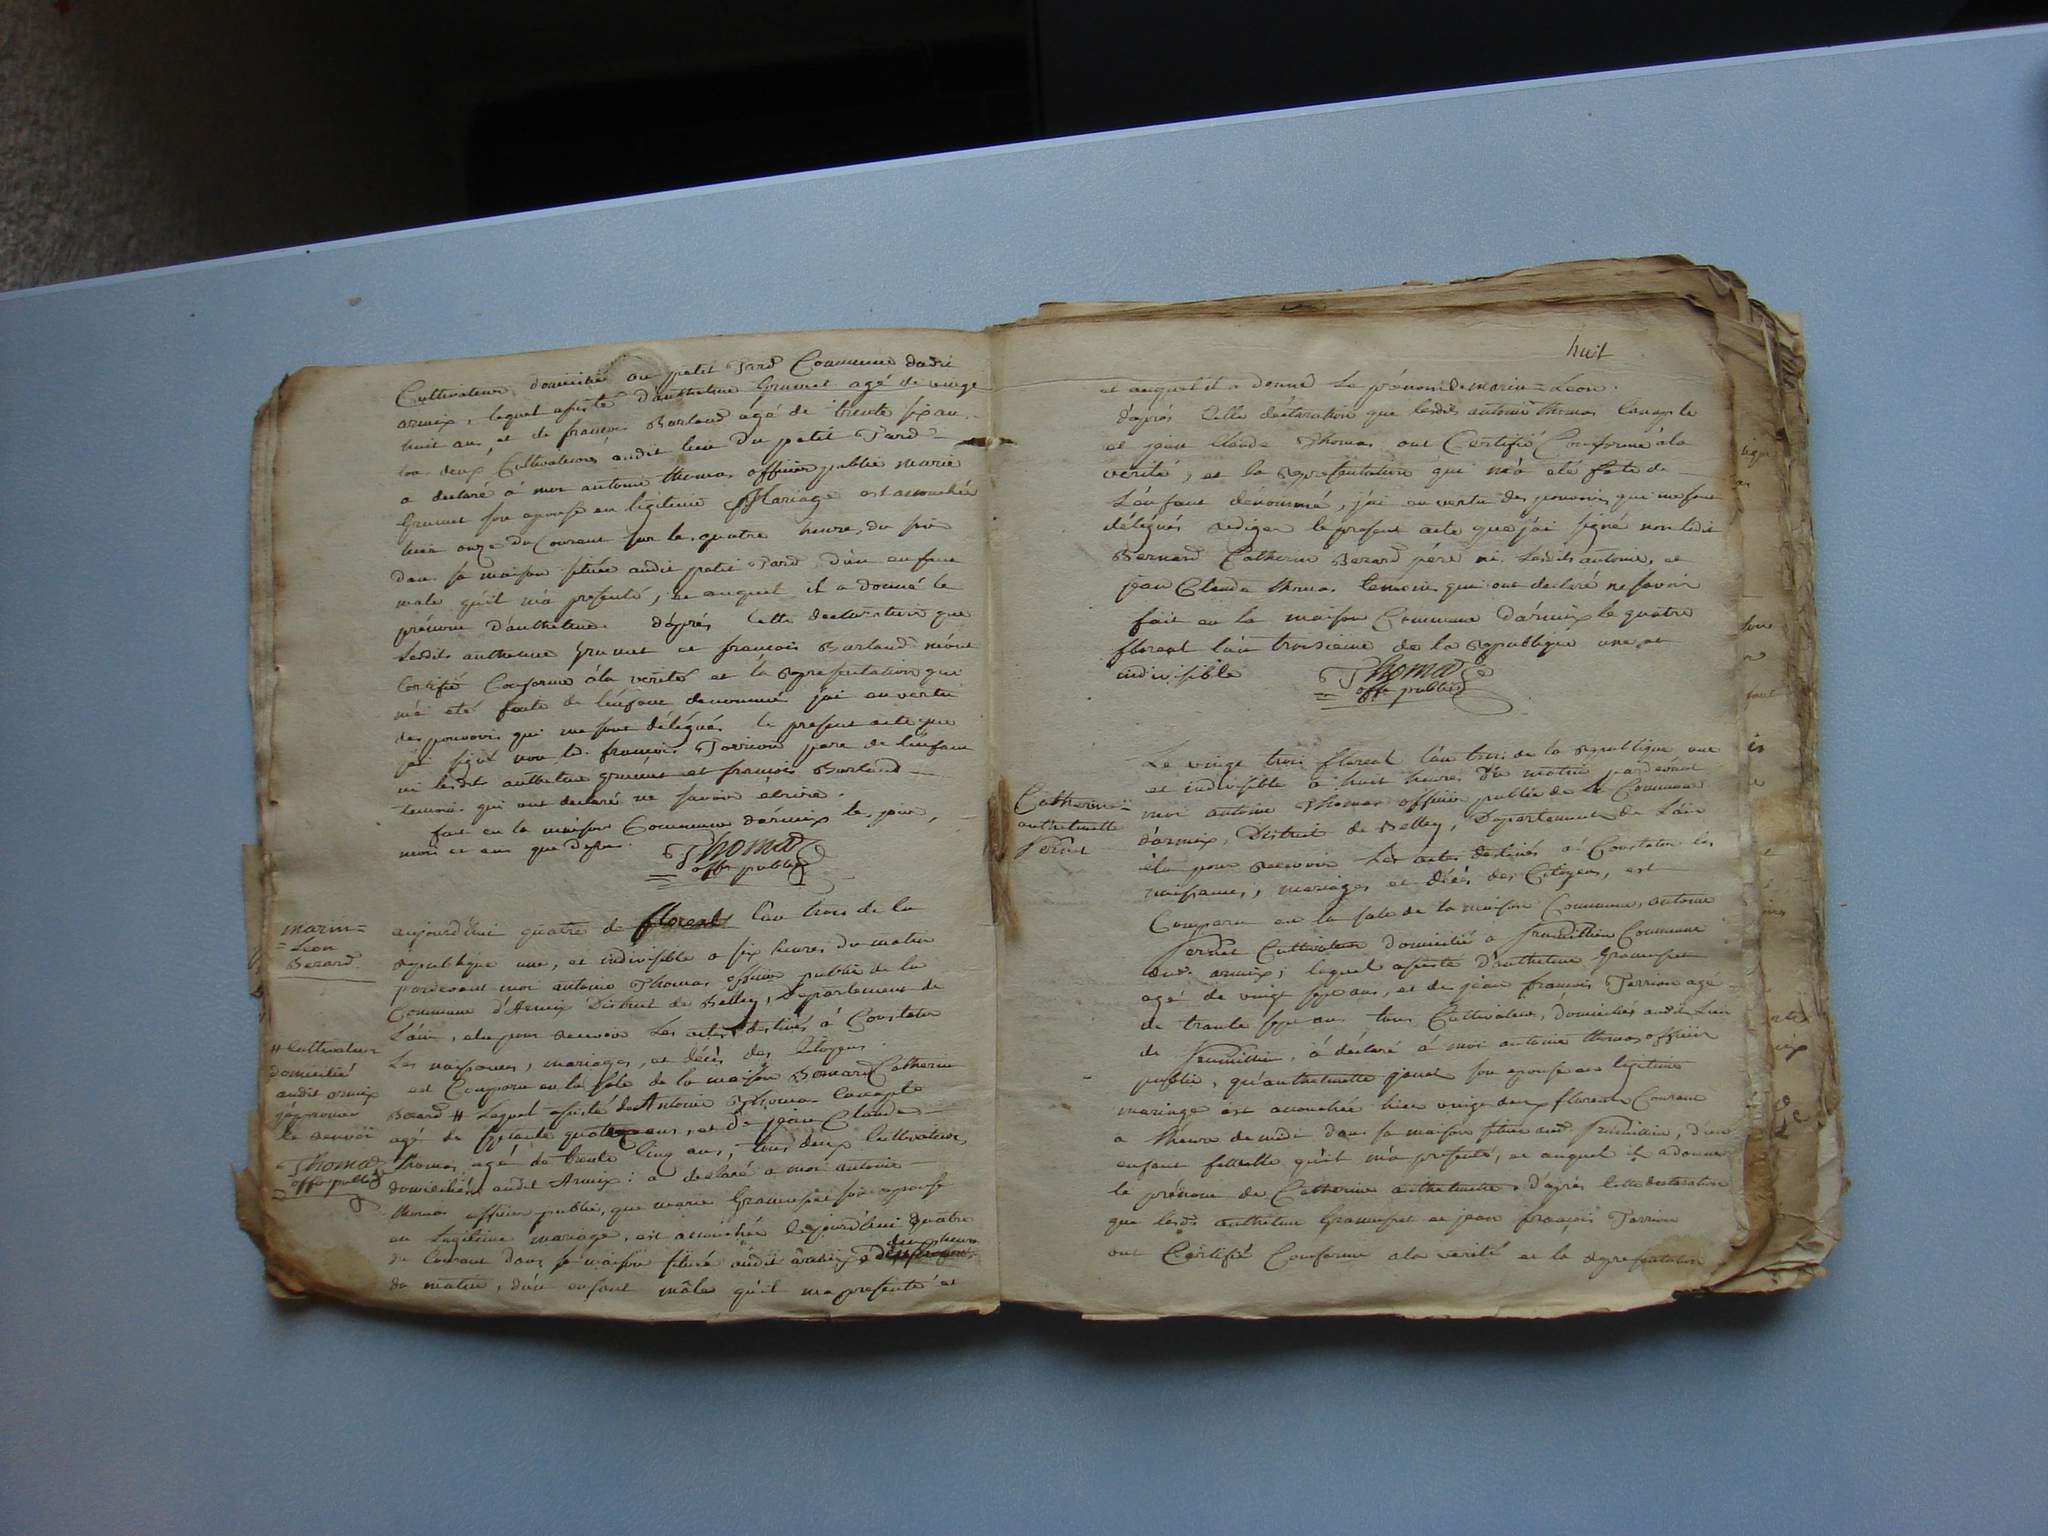 Cultivateur domicilié au petit Tard Commune dudit
armix, lequel assisté d'anthelme Grumet agé de vingt
huit ans et de françois Burland agé de trente six ans
tou deux Cultivateurs audit lieu Du petit Tard
a declaré à moi antoine thomas officier public marie
Grumet son epouse en legitime Mariage est accouchée
hier onze du Courant sur les quatre heures du soir
dans sa maison située audit petit Tard d'un enfant
male qu'il m'a presenté, et auquel il a donné le
prénom d'anthelme d'après Cette declaration que
lesdits anthelme Grumet et francois Burland m'ont
Certifié Conforme à la verité et la representation qui
m'a eté faite de l'enfant denommé j'ai en vertu
des pouvoirs qui me sont délégués le present acte que
j'ai signé non led. françois Torrion pere de l'enfant
ni lesdits anthelme grumet et françois Burland
temoins qui ont declaré ne savoir ecrire.
fait en la maison Commune d'armix les jour,
mois et ans que dessus.
Thomas
offr public
marin=
=Leon
Berard
aujourd'hui quatre de floreal l'an trois de la
republique une, et indivisible a six heures du matin
pardevant moi antoine Thomas officier public de la
Commune d'Armix District de Belley, Departement de
L'ain, elu pour recevoir Les actes destinés à Constater
Les naissances, mariages, et décès des Citoyens
est Comparu en la sale de la maison Bernard Catherin
Berard # Lequel assisté de Antoine Thomas
agé de septante quatre ans, et de jean Claude
thomas, agé de trente Cinq ans, tous deux Cultivateurs,
domiciliés audit Armix: a declaré a moi antoine
thomas officier public, que marie Gramusset son epouse
en Legitime mariage, est accouchée cejourd'hui quatre
du Courant dans sa maison située audit armix a deux heures
du matin, d'un enfant mâle qu'il ma presenté et
# Cultivateur
domicilié
audit armix
j'approuve
le renvoi
Thomas
offr public
huit
et auquel il a donné Le prénom de marin = Leon.
d'après Cette déclaration que lesdits antoine thomas
et jean Claude Thomas ont Certifié Conforme à la
verité, et la representation qui m'a eté faite de
L'enfant dénommé, j'ai en vertu des pouvoirs qui me sont
délégués rediger le present acte que j'ai signé non ledit
Bernard Catherin Berard père ni Lesdits antoine, et
jean Claude thomas temoins qui ont declaré ne savoir
fait en la maison Commune d'armix le quatre
floreal l'an troisieme de la Republique une et
indivisible
Thomas
offr public
Catherine=
anthelmette
Vernet
Le vingt trois floreal l'an trois de la Republique une
et indivisible a huit heures du matin pardevant
moi antoine Thomas officier public de la Commune
d'armix, District de Belley, Departement de L'ain
élu pour recevoir Les actes destinés à Constater les
naissances, mariages et décès des Citoyens, est
Comparu en la sale de la maison Commune, antoine
Vernet Cultivateur domicilié a Commune
dud. armix; lequel assisté d'anthelme Gramusset
agé de vingt sept ans, et de jean françois Torrion agé
de trante sept ans tous Cultivateurs, domiciliés audit Lieu
de à déclaré à moi antoine thomas officier
public, qu'anthelmette son epouse en legitime
mariage est accouchée hier vingt deux floreal Courant
a l'heure de midi dans sa maison située aud d'un
enfant femelle qu'il m'a presenté, et auquel il a donné
le prénom de Catherine anthelmette, d'après Cette declaration
que lesds anthelme Gramusset et jean françois Torrion
ont Certifié Conforme a la verité et la representation